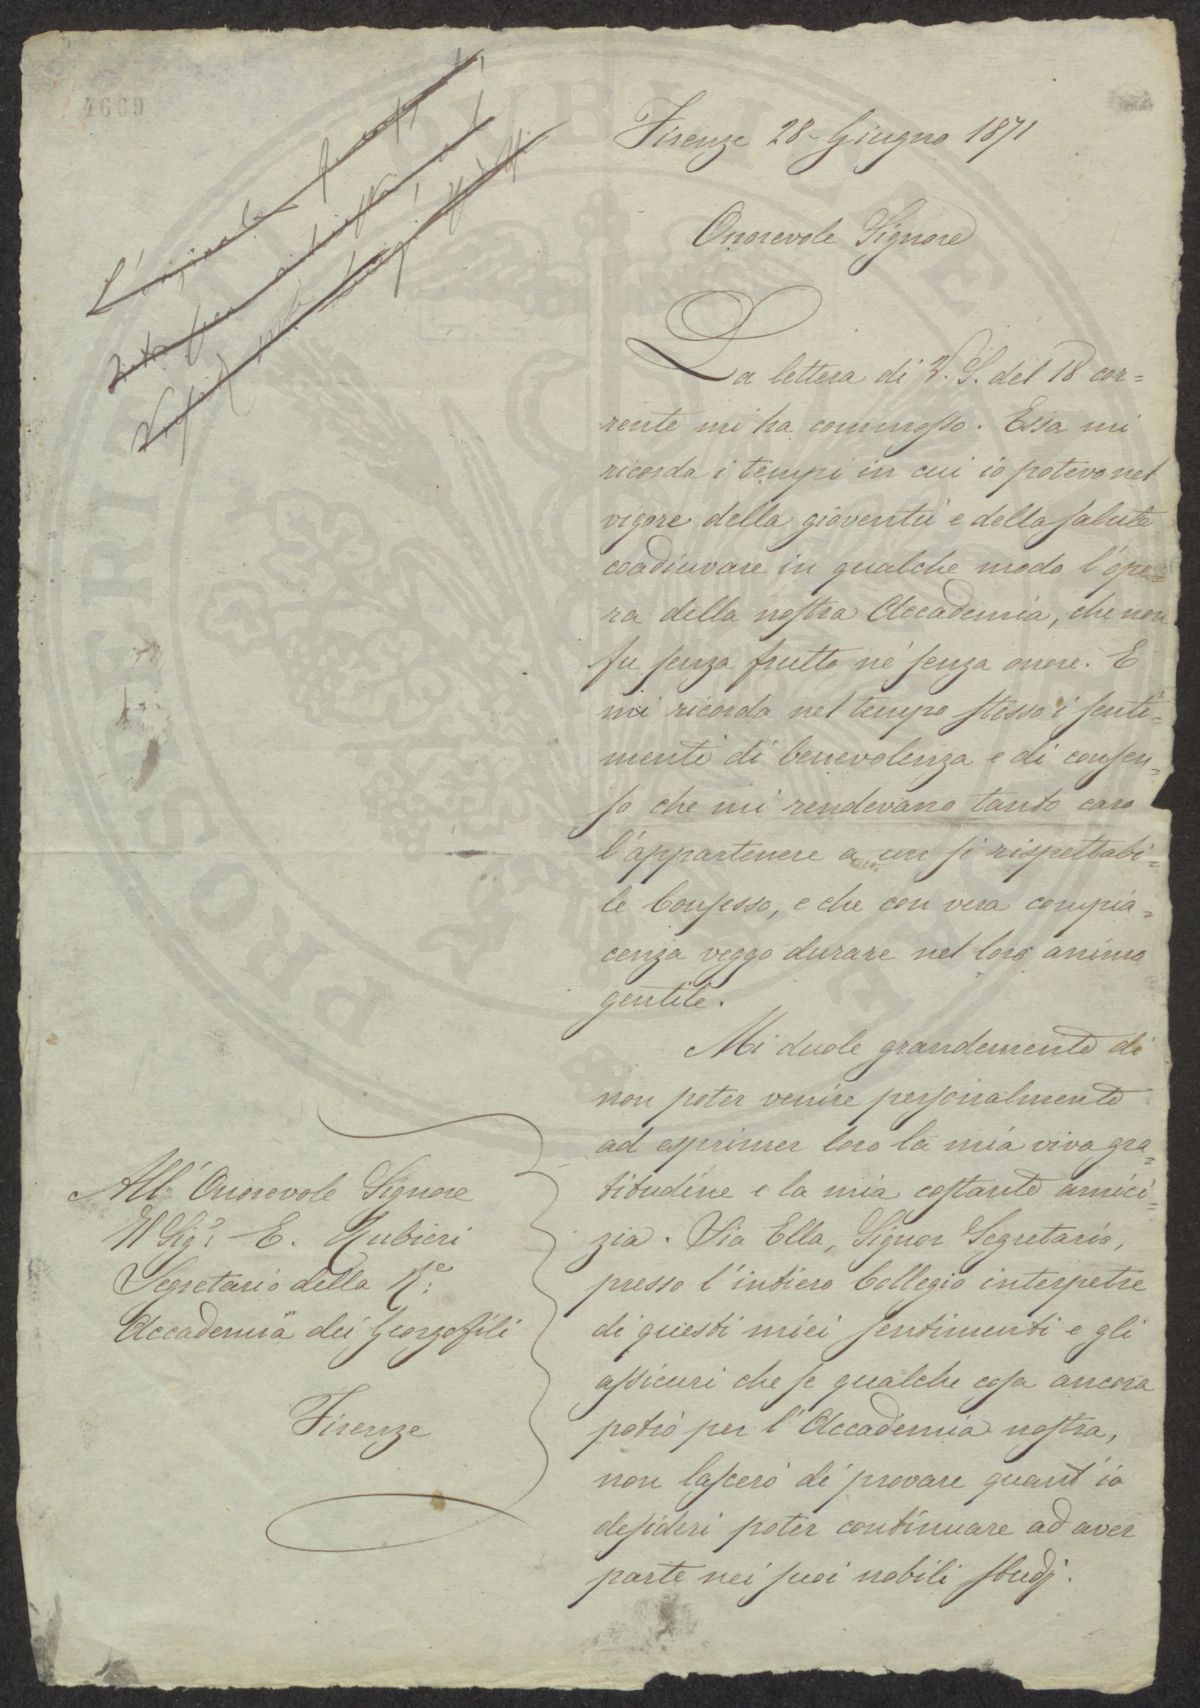 4669
L'originale
Firenze 28 Giugno 1871
Onorevole Signore
La lettera di V. S. del 18 cor=
rente mi ha commosso. Essa mi
ricorda i tempi in cui io potevo nel
vigore della gioventù e della salute
coadiuvare in qualche modo l'ope=
ra della nostra Accademia, che non
fu senza frutto nè senza onore. E
mi ricorda nel tempo stesso i senti=
menti di benevolenza e di consen=
so che mi rendevano tanto caro
l'appartenere a un sì rispettabi=
le Consesso, e che con vera compia=
cenza veggo durare nel loro animo
gentile.
Mi duole grandemente di
non poter venire personalmente
ad esprimer loro la mia viva gra=
titudine e la mia costante amici=
zia. Sia Ella, Signor Segretario,
presso l'intiero Collegio interpetre
di questi miei sentimenti e gli
assicuri che se qualche cosa ancora
potrò per l'Accademia nostra,
non lascerò di provare quant'io
desideri poter continuare ad aver
parte nei suoi nobili studj.
All'Onorevole Signore
Il Sig.r E. Rubieri
Segretario della R.e
Accademia dei Georgofili
Firenze